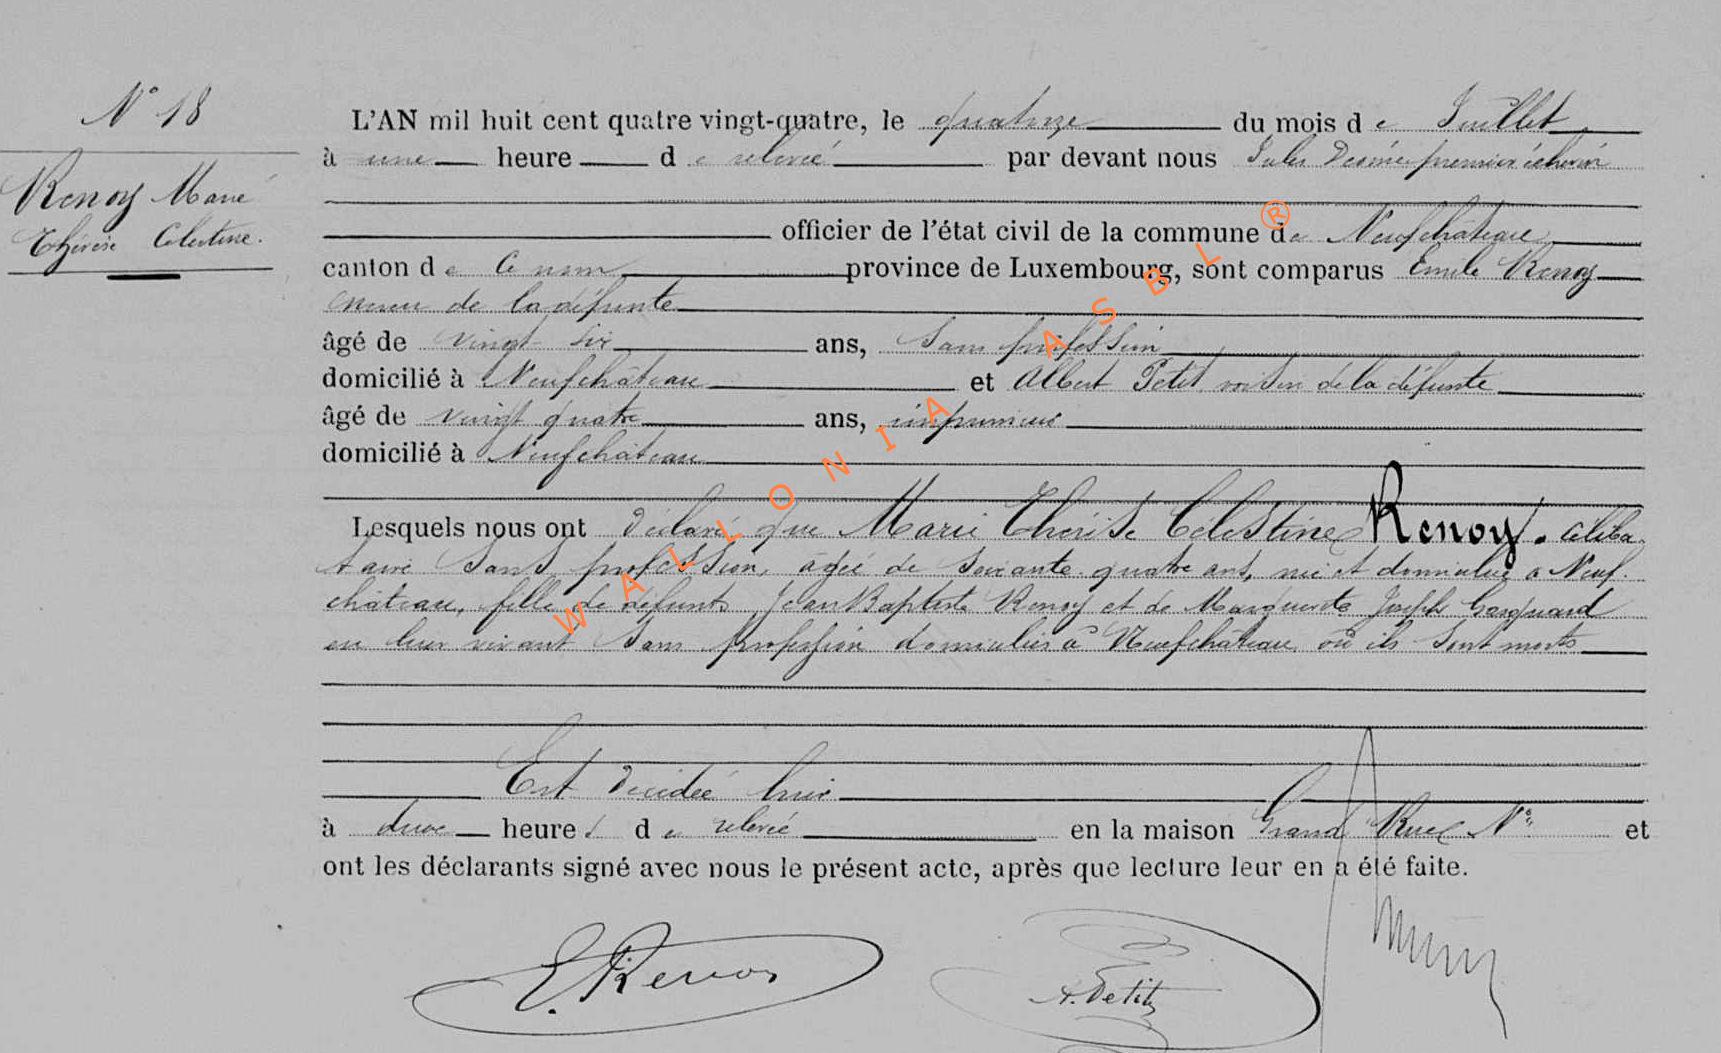 N° 18
Renoy Marie
Thérèse Célestine.
L'AN mil huit cent quatre vingt-quatre, le quatorze du mois de Juillet
à une heure de relevée par devant nous Jules premier échevin
officier de l'état civil de la commune de Neufchâteau
canton de Ce nom province de Luxembourg, sont comparus Emile Renoy
neveu de la défunte
âgé de vingt six ans, Sans profession
domicilié à Neufchâteau et Albert Petit voisin de la défunte
âgé de vingt quatre ans, imprimeur
domicilié à Neufchâteau
Lesquels nous ont déclaré que Marie Thérèse Célestine Renoy. céliba-
taire Sans profession, âgée de soixante quatre ans, née et domiciliée à Neuf-
château, fille de défunts Jean Baptiste Renoy et de Marguerite Joseph
en leur vivant Sans profession domiciliés à Neufchâteau où ils sont morts
Est décédée hier
à onze heures de relevée en la maison Grand Rue N° et
ont les déclarants signé avec nous le présent acte, après que lecture leur en a été faite.
E. Renoy
A. Petit
WALLONIA ASBL ®